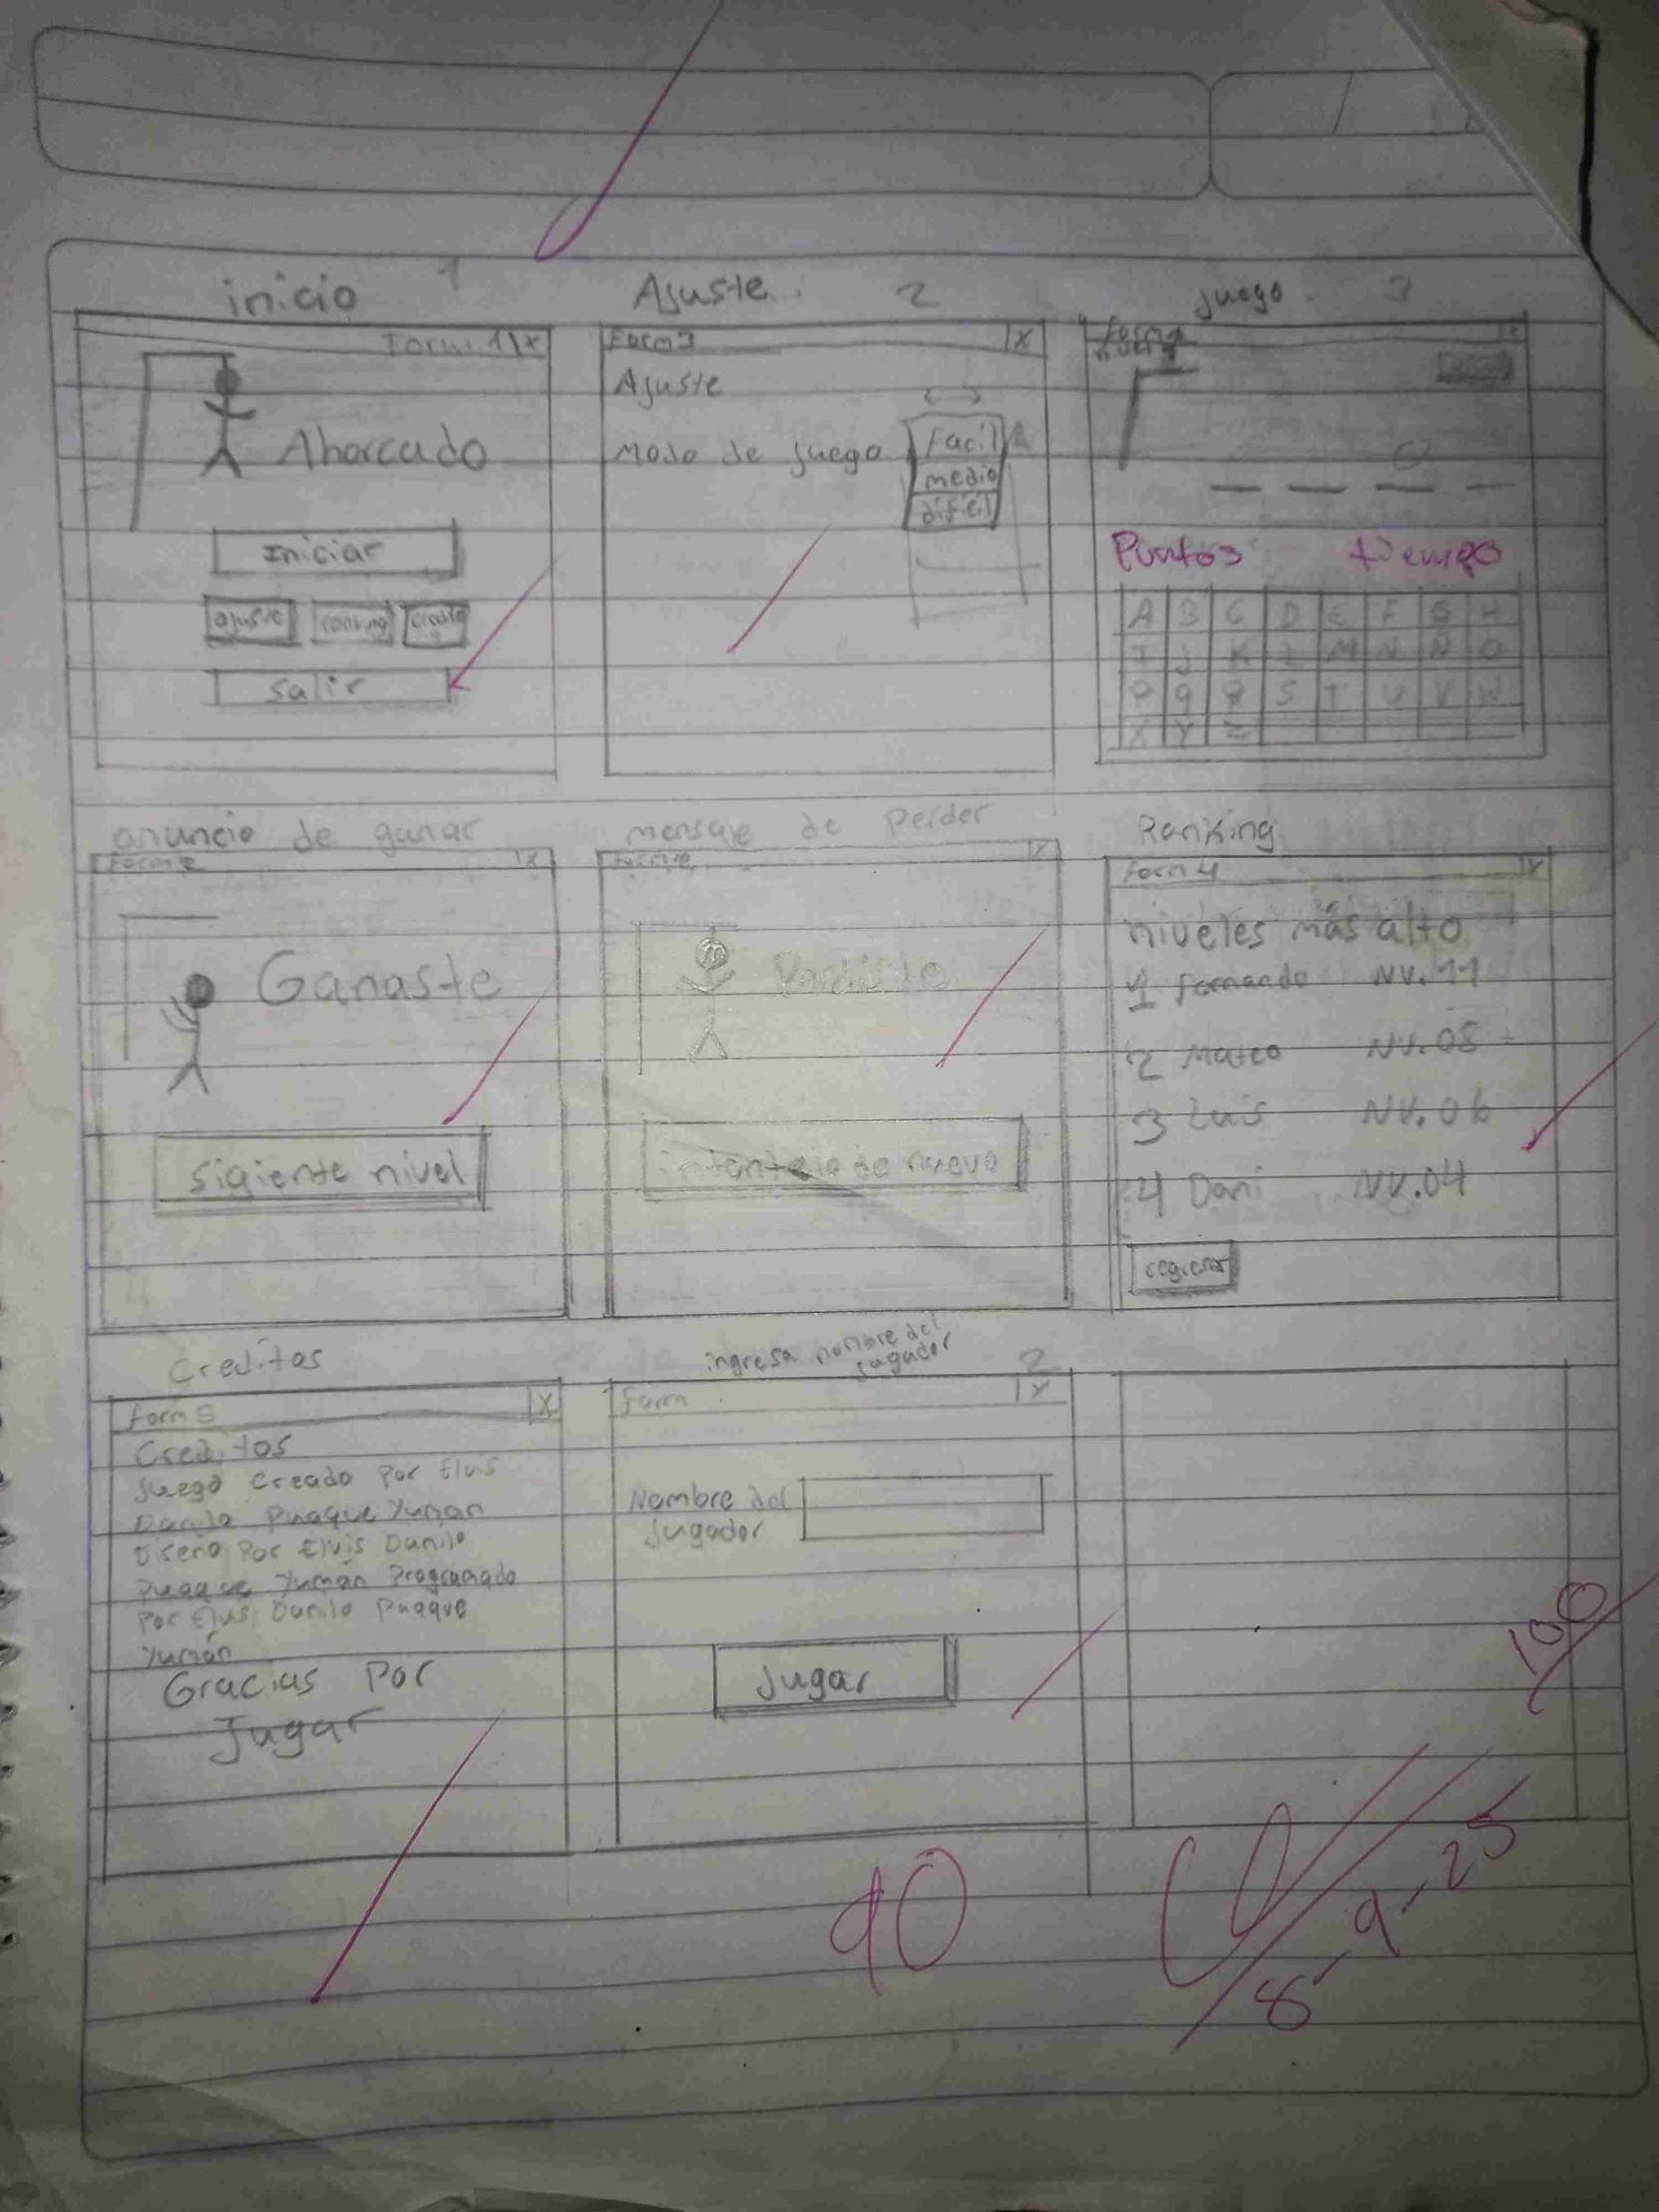 inicio 1
Form 1 | x
Ahorcado
Iniciar
ajuste
Salir
Ajuste. 2
Form 3 | x
Ajuste
Modo de juego
facil
medio
dificil
juego. 3
Puntos tiempo
A B C D E F G H
I J K L M N Ñ O
P q R S T U V W
X Y Z
anuncio de ganar
Form 2 | x
Ganaste
Sigiente nivel
mensaje de perder
x
Perdiste
intentalo de nuevo
Ranking
Form 4 x
niveles más alto
1 Fernando NV.11
2 Mateo NV.08
3 Luis NV.06
4 Dani NV.04
regresar
Creditos
Form 5 x
Creditos
Juego Creado Por Elvis
Danilo Puaque Yuman
Diseño Por Elvis Danilo
Puaque Yumán Programado
Por Elvis Danilo Puaque
Yumán
Gracias Por
Jugar
ingresa nombre del
jugador 2
Form | x
Nombre del
jugador
Jugar
100
90
8-9-25